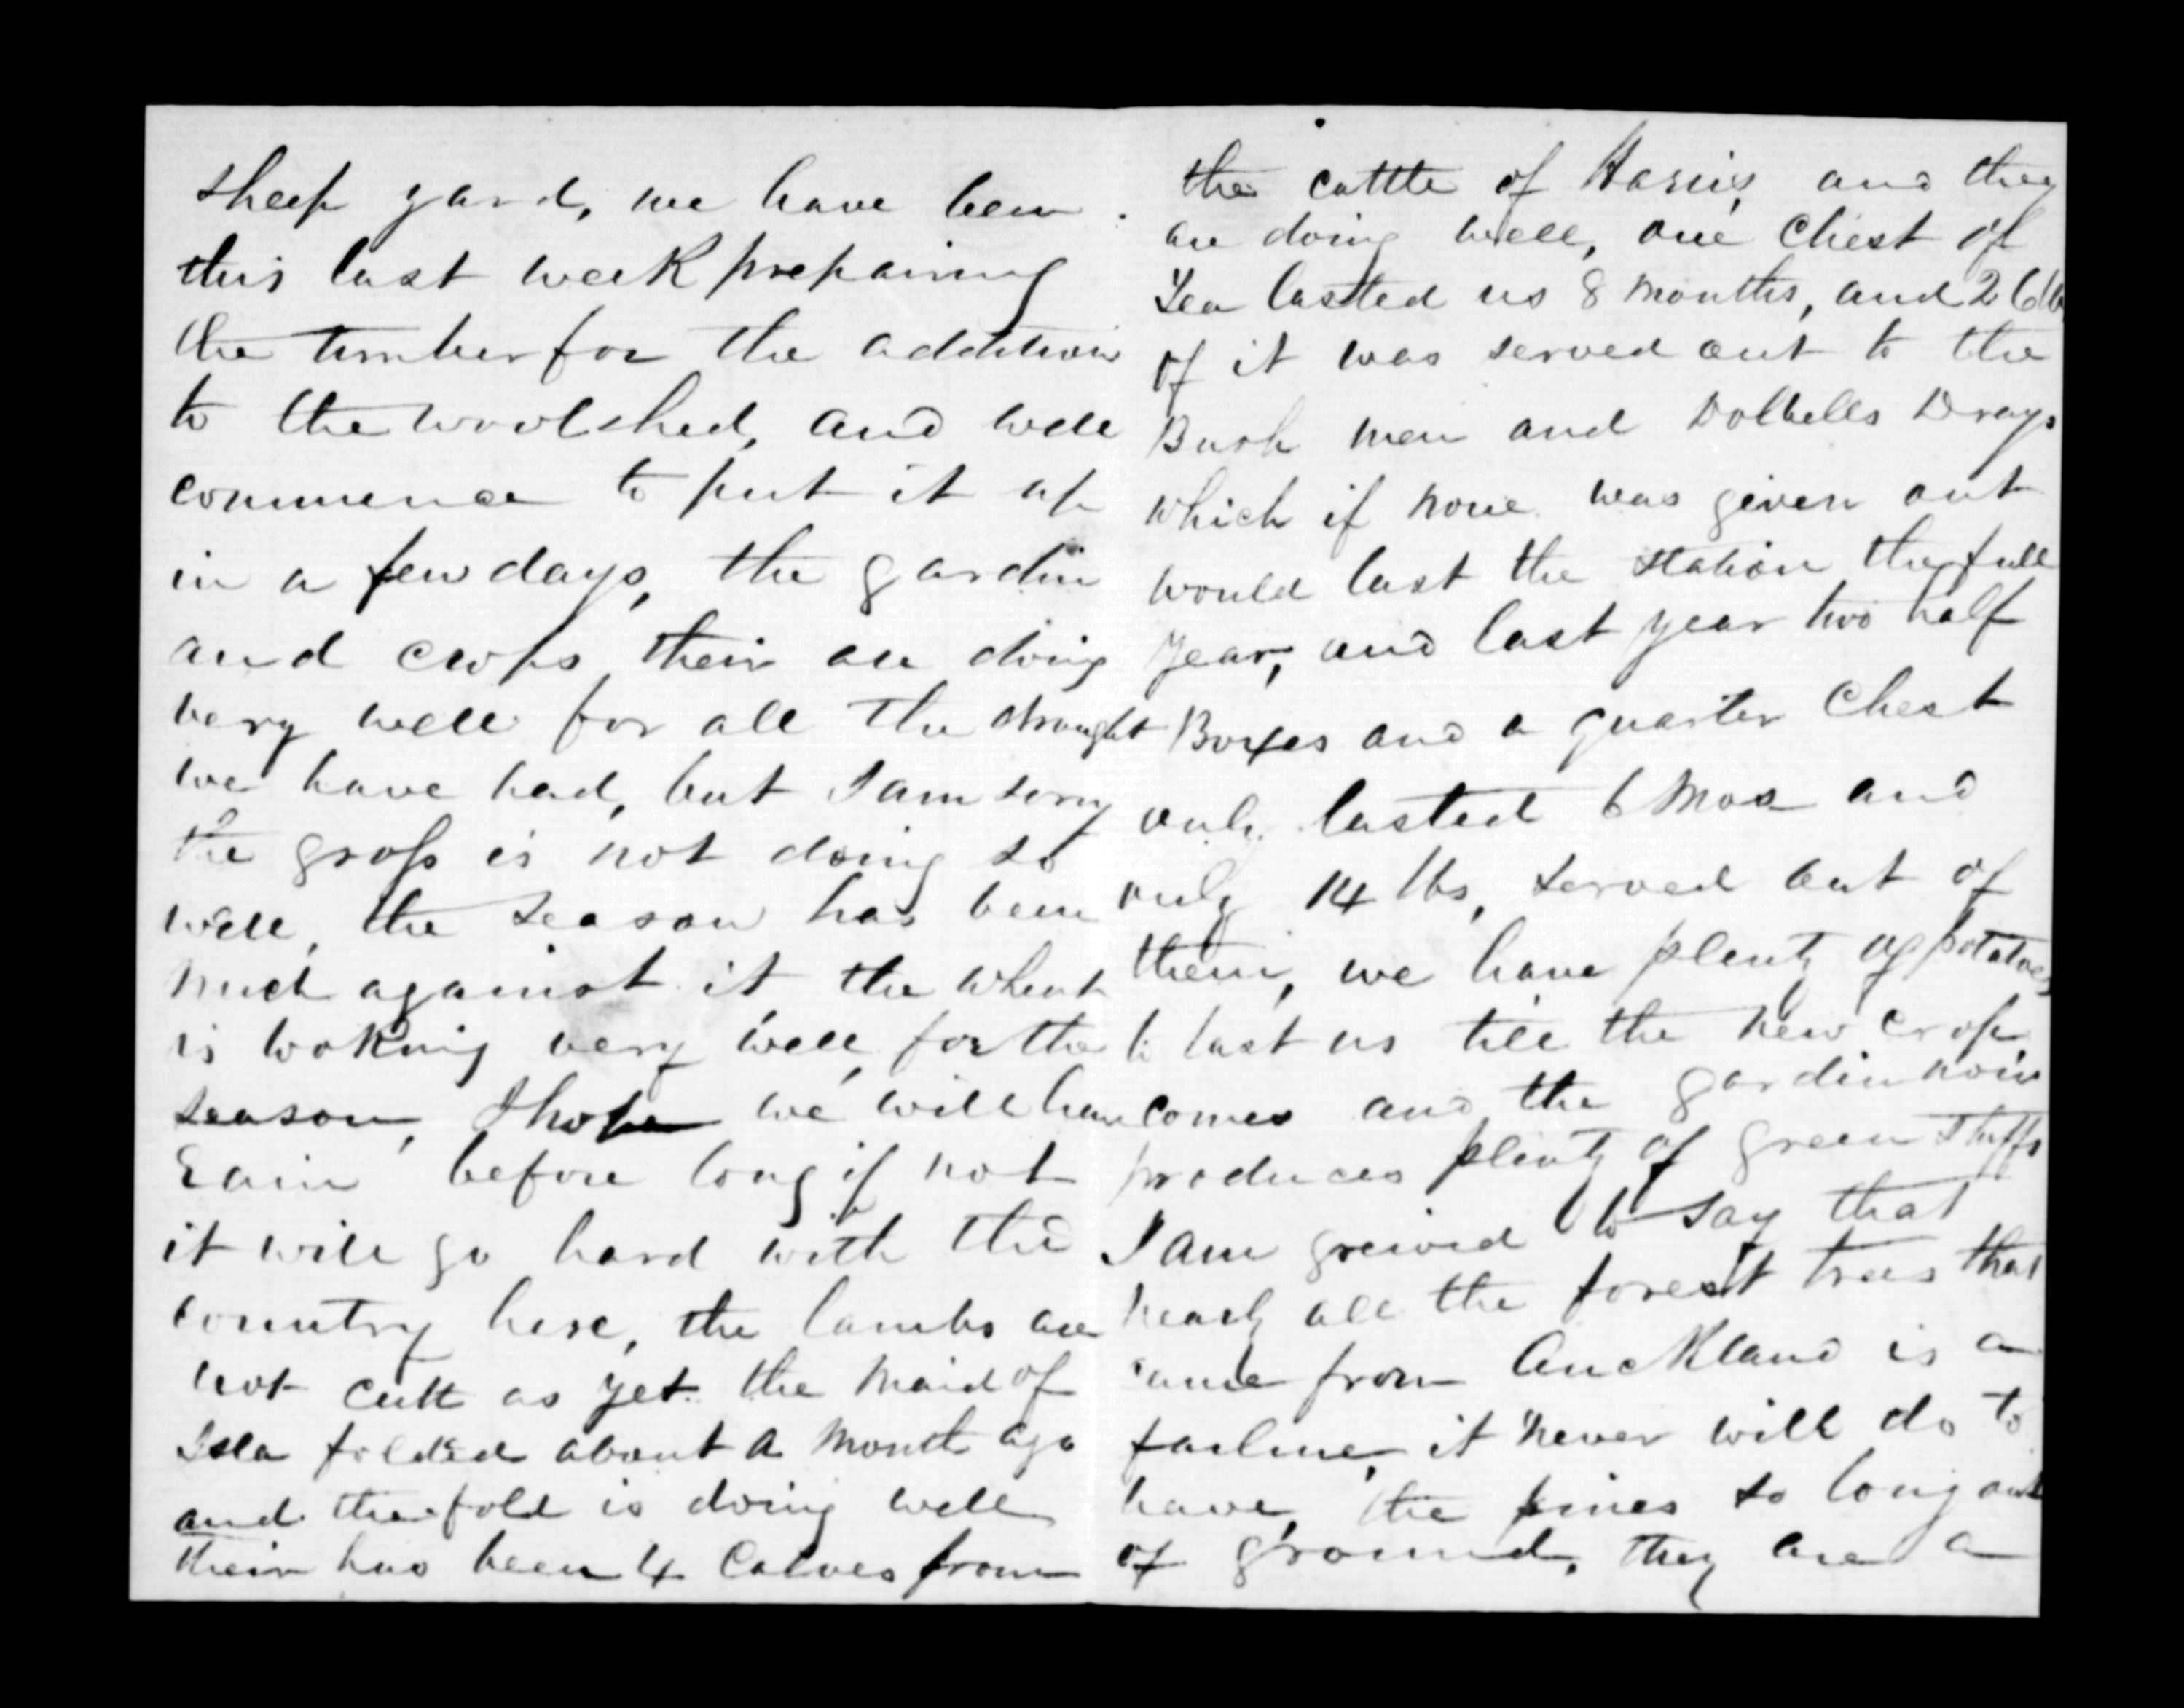 sheep yard, we have been
this last week prepairing
the timber for the addition
to the woolshed, and will
commence to put it up
in a few days, the gardin
and crops their are doing
very well for all the drought
we have had, but I am sory
the grass is not doing so
well, the season has been
much against it, the wheat
is looking very well, for the
season, I hope we will have
rain before long if not
it will go hard with the
country here, the lambs are
not cutt as yet. the Maid of
Isla folded about a month ago
and the fold is doing well
their has been 4 Calves from
the cattle of Harris, and they
are doing well, one Chest of
Tea lasted us 8 months, and 26 lb
of it was served out to the
Bush men and Dolbells Drays
which if none was given out
would last the station the full
year, and last year two half
Boxes and a quarter Chest
only lasted 6 Mos and
only 14 lbs, served out of
them, we have plenty of potatoes
to last us till the new crop
comes and the gardin now
produces plenty of green stuffs
I am greived to say that
nearly all the forest trees that
came from Auckland is a
failure, it never will do to
have, the pines so long out
of ground, they are a